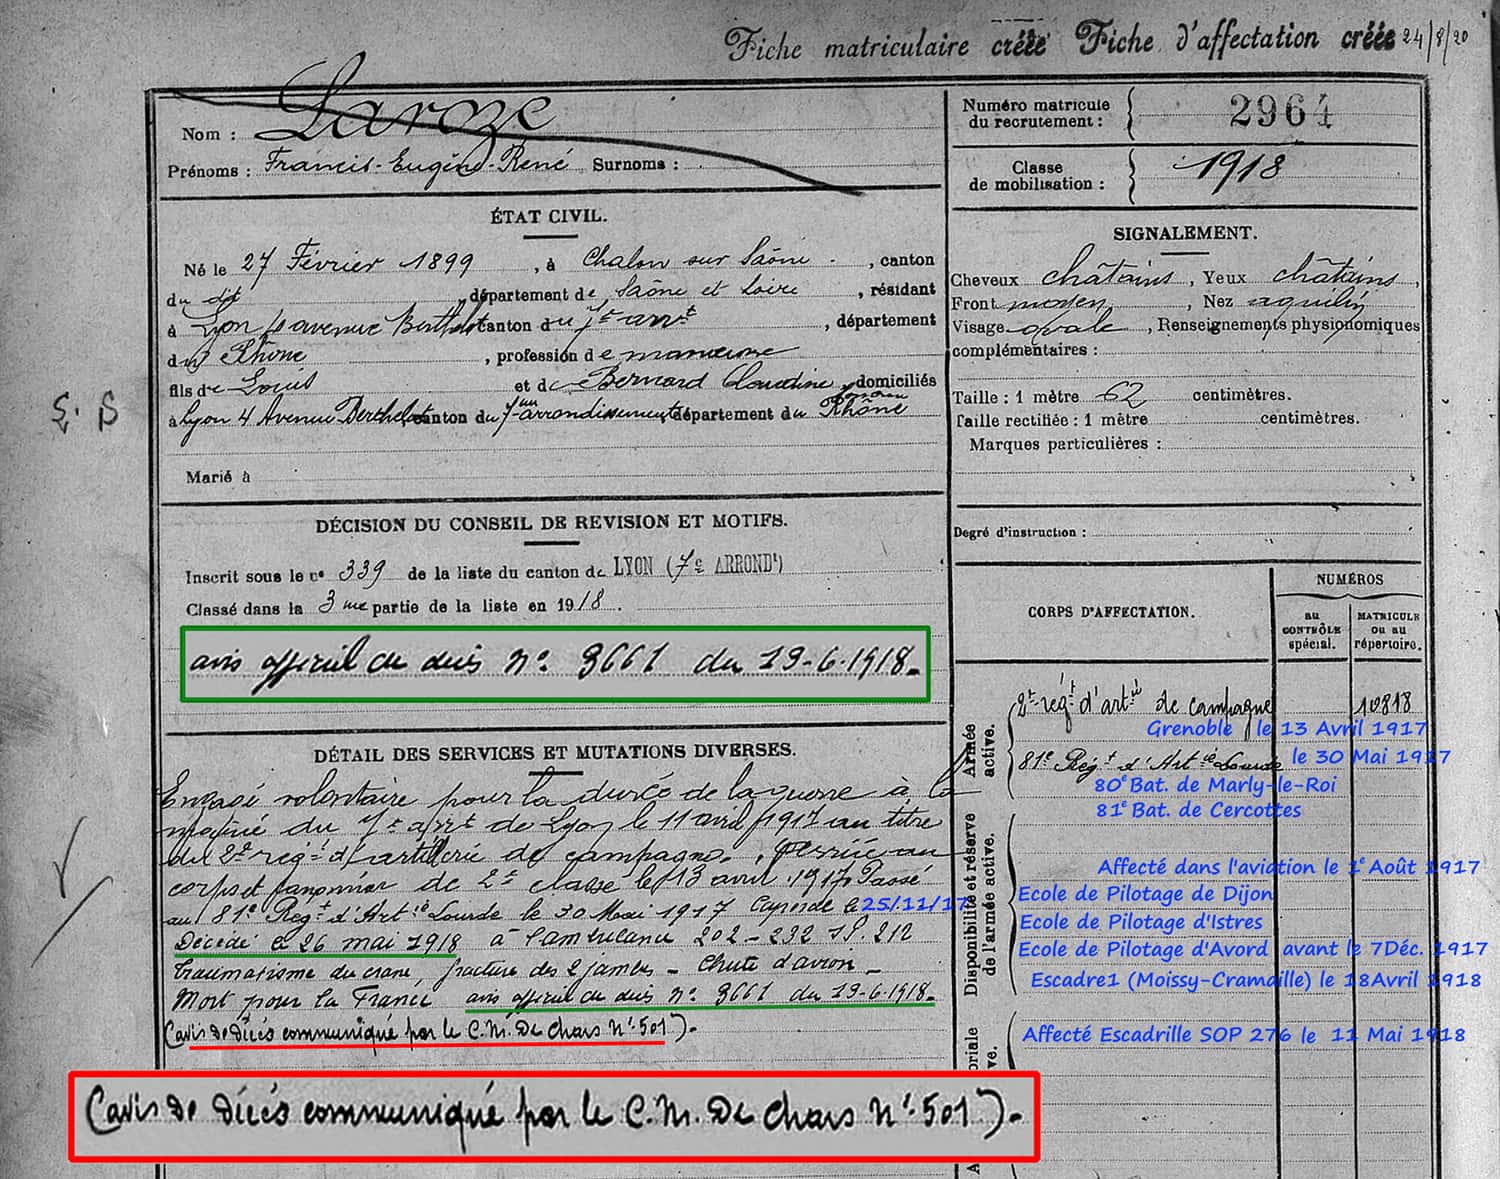 Fiche matriculaire créée Fiche d'affectation créée 24/8/20
Nom : Laroze
Prénoms : Francis-Eugène-René Surnoms :
Numéro matricule du recrutement : 2964
Classe de mobilisation : 1918
ÉTAT CIVIL.
Né le 27 Février 1899, à Chalon sur Saône, canton
du dit, département de Saône et Loire, résidant
à Lyon avenue Berthelot canton du 7e arrt, département
du Rhône, profession de
fils de Louis et de Bernard Claudine, domiciliés
à Lyon 4 Avenue Berthelot canton du 7me arrondissement, département du Rhône
Marié à
SIGNALEMENT.
Cheveux châtains, Yeux châtains,
Front moyen, Nez aquilin
Visage ovale, Renseignements physionomiques
complémentaires :
Taille : 1 mètre 62 centimètres.
Taille rectifiée : 1 mètre centimètres.
Marques particulières :
Degré d'instruction :
DÉCISION DU CONSEIL DE REVISION ET MOTIFS.
Inscrit sous le no 339 de la liste du canton de LYON (7e ARRONDt)
Classé dans la 3me partie de la liste en 1918.
avis officiel de décès no. 9661 du 19-6-1918.
DÉTAIL DES SERVICES ET MUTATIONS DIVERSES.
Engagé volontaire pour la durée de la guerre à la
mairie du 7e arrt de Lyon le 11 avril 1917 au titre
du 2e regt d'artillerie de campagne. Arrivé au
corps et canonnier de 2e classe le 13 avril 1917. Passé
au 81e Régt d'Artie Lourde le 30 Mai 1917 Caporal le 25/11/17
Décédé le 26 mai 1918 à l'ambulance 202-232 SP. 212
traumatisme du crane fracture des 2 jambes - Chute d'avion -
Mort pour la France avis officiel de décès no. 9661 du 19-6-1918.
(avis de décès communiqué par le C.M. De Chars No 501).
(avis de décès communiqué par le C.M. De Chars No 501).
CORPS D'AFFECTATION.
NUMÉROS
au CONTRÔLE spécial.
MATRICULE ou au répertoire.
Armée active.
2e régt d'artie de campagne 10818
Grenoble le 13 Avril 1917
81e Régt d'Artie Lourde le 30 Mai 1917
80e Bat. de Marly-le-Roi
81e Bat. de Cercottes
Disponibilité et réserve de l'armée active.
Affecté dans l'aviation le 1e Août 1917
Ecole de Pilotage de Dijon
Ecole de Pilotage d'Istres
Ecole de Pilotage d'Avord avant le 7Déc. 1917
Escadre1 (Moissy-Cramaille) le 18Avril 1918
Affecté Escadrille SOP 276 le 11 Mai 1918